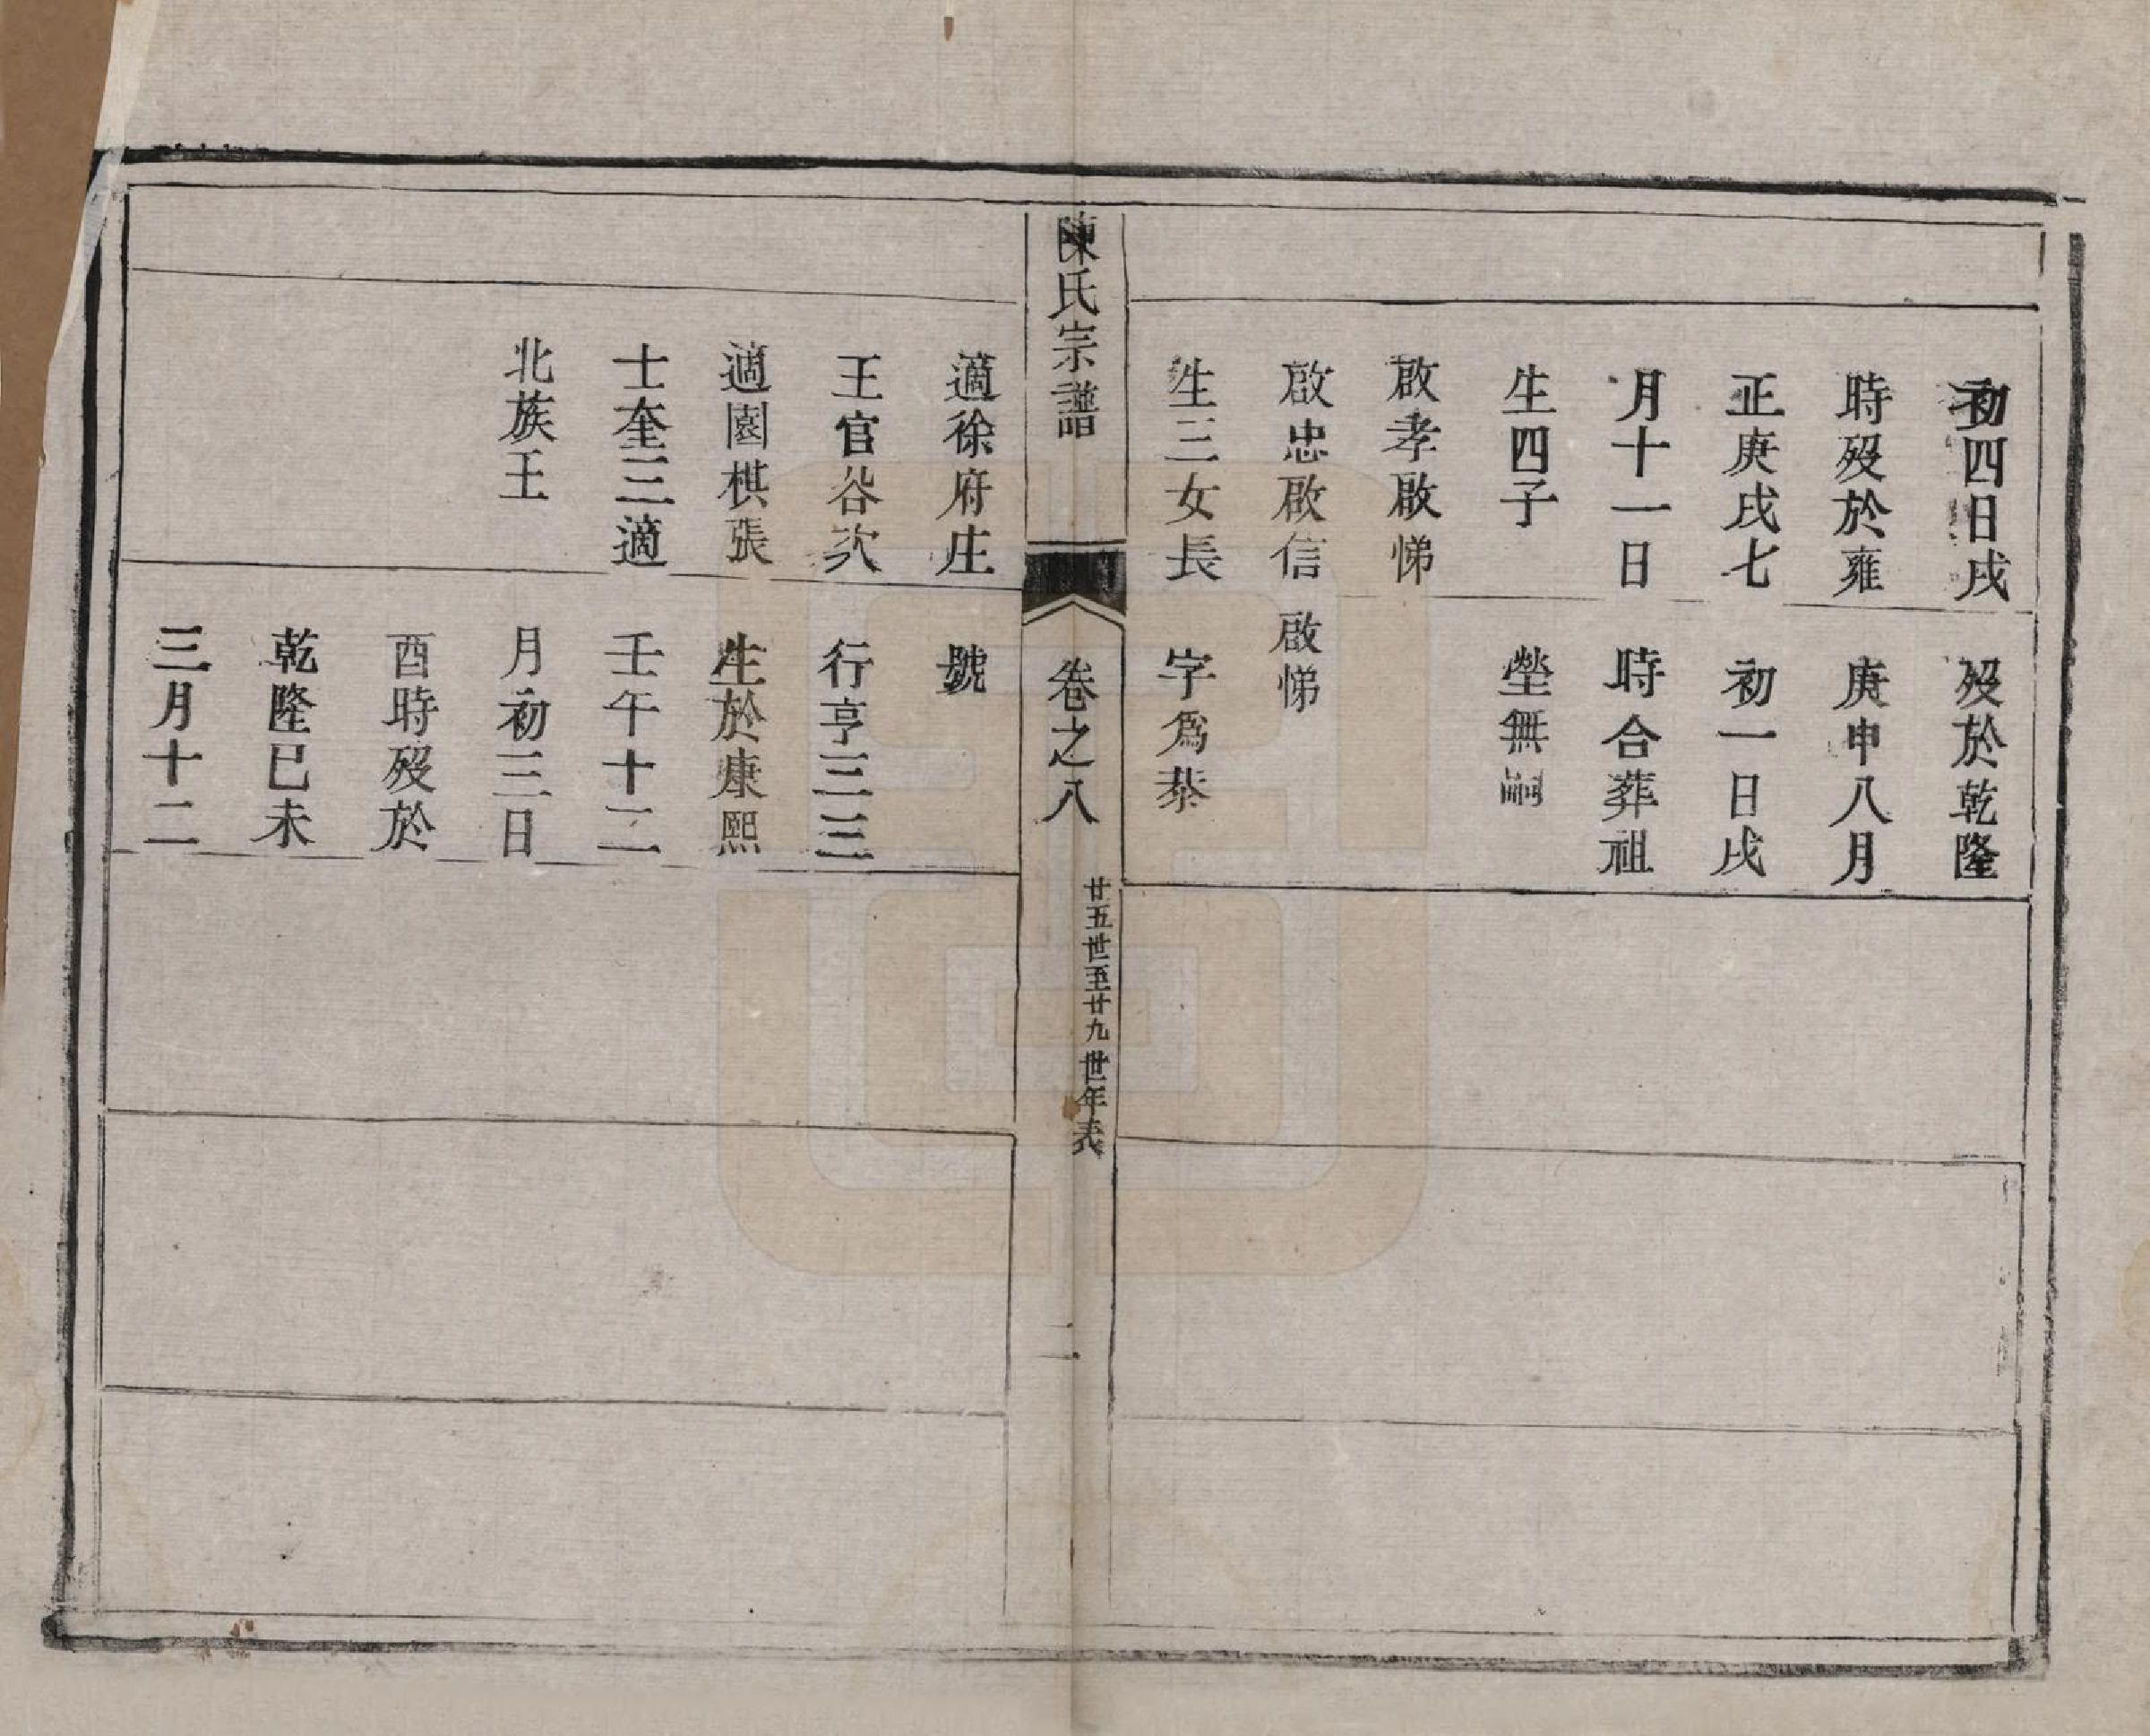 初四日戌
時歿於雍
正庚戌七
月十一日
生四子
啟孝啟悌
啟忠啟信
生三女長
歿於乾隆
庚申八月
初一日戌
時合葬祖
塋無嗣
啟悌
字為恭
陳氏宗譜
卷之八
廿五世至廿九世年表
二
適徐府庄
王官谷次
適園棋張
士奎三適
北族王
號
行亨三三
生於康熙
壬午十二
月初三日
酉時歿於
乾隆已未
三月十二